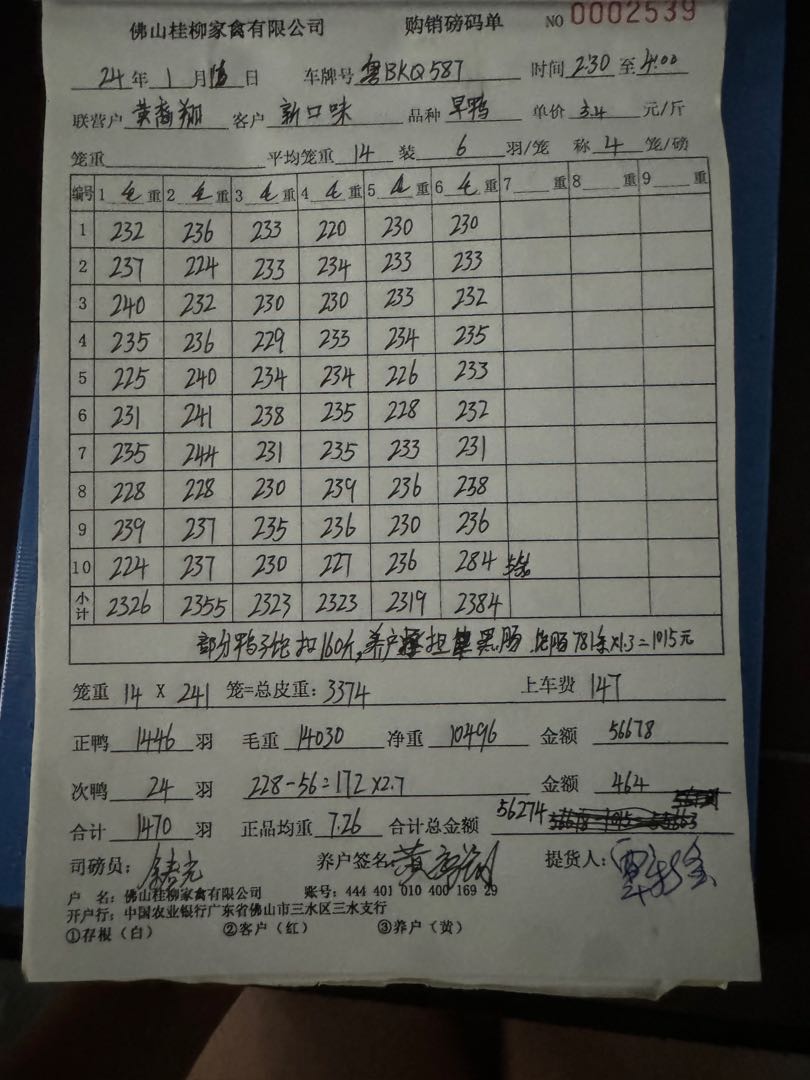 佛山桂柳家禽有限公司 购销磅码单 NO 0002539
24年 1月 日 车牌号 粤BKQ587 时间 2:30 至 4:00
联营户 黄裔翔 客户 新口味 品种 早鸭 单价 3.4 元/斤
笼重 平均笼重 14 装 6 羽/笼 称 4 笼/磅
编号 1 毛 重 2 毛 重 3 毛 重 4 毛 重 5 毛 重 6 毛 重 7 重 8 重 9 重
1 232 236 233 220 230 230
2 237 224 233 234 233 233
3 240 232 230 230 233 232
4 235 236 229 233 234 235
5 225 240 234 234 226 233
6 231 241 238 235 228 232
7 235 244 231 235 233 231
8 228 228 230 239 236 238
9 239 237 235 236 230 236
10 224 237 230 227 236 284
小计 2326 2355 2323 2323 2319 2384
部分鸭子饱扣160斤,养户承担 黑肠 肫肠781条×1.3=1015元
笼重 14 X 241 笼=总皮重: 3374 上车费 147
正鸭 1446 羽 毛重 14030 净重 10496 金额 56678
次鸭 24 羽 228-56=172×2.7 金额 464
合计 1470 羽 正品均重 7.26 合计总金额 56274
司磅员: 养户签名 提货人:
户 名: 佛山桂柳家禽有限公司 账号: 444 401 010 400 169 29
开户行: 中国农业银行广东省佛山市三水区三水支行
①存根(白) ②客户(红) ③养户(黄)